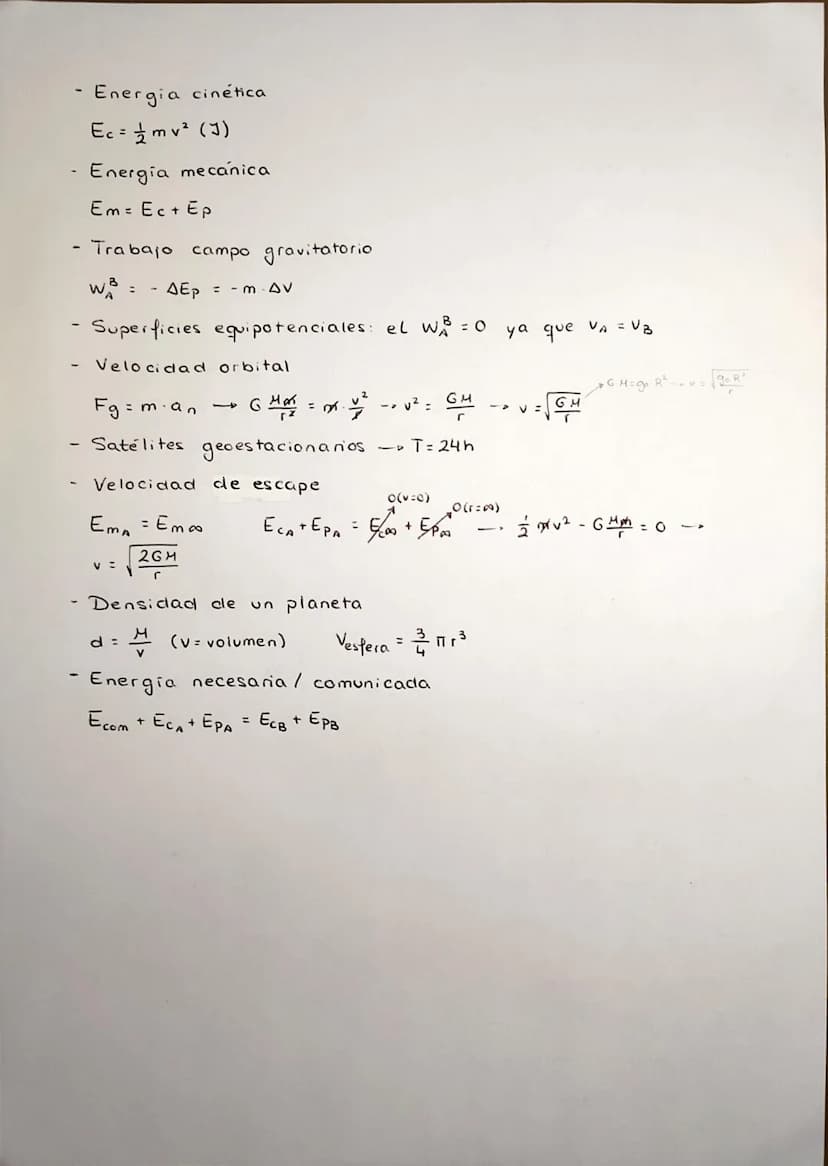 - Energia cinética
Ec = 1/2 m v² (J)
- Energía mecánica
Em = Ec + Ep
- Trabajo campo gravitatorio
W_A^B = - ΔEp = - m · ΔV
- Superficies equipotenciales: el W_A^B = 0 ya que V_A = V_B
- Velocidad orbital
→ G M = g₀ R² → v = √(g₀ R² / r)
Fg = m · a_n → G M m / r² = m · v² / r → v² = GM / r → v = √(GM / r)
- Satélites geoestacionarios → T = 24h
- Velocidad de escape
0(v=0) 0(r=∞)
Em_A = Em∞ Ec_A + Ep_A = Ec∞ + Ep∞ → 1/2 m v² - G M m / r = 0 →
v = √(2GM / r)
- Densidad de un planeta
d = M / V (V = volumen) Vesfera = 3/4 π r³
- Energía necesaria / comunicada
Ecom + Ec_A + Ep_A = Ec_B + Ep_B